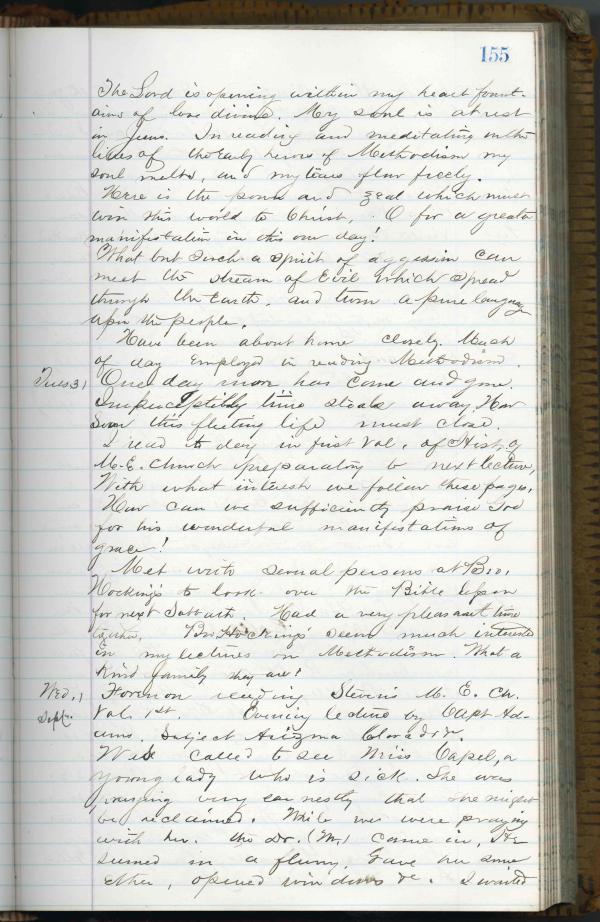 155
The Lord is opening within my heart fount-
ains of love divine. My soul is at rest
in Jesus. In reading and meditating on the
lives of the early heroes of Methodism my
soul melts, and my tears flow freely.
Here is the power and zeal which must
win this world to Christ. O for a greater
manifestation in this our day!
What but such a spirit of aggression can
meet the stream of Evil which spread
through the Earth, and turn a pure language
upon the people.
Have been about home closely. Much
of day Employed in reading Methodism.
Tues 31 One day more has come and gone.
Imperceptibly time steals away. How
Soon this fleeting life must close.
I read to day in first Vol. of Hist. of
M.E. Church preparatory to next lecture,
With what interest we follow these pages,
How can we sufficiently praise God
for his wonderful manifestations of
grace!
Met with several persons at Bro.
Hocking's to look over the Bible lesson
for next Sabbath. Had a very pleasant time
together. Bro. Hocking's seem much interested
in my lectures on Methodism. What a
kind family they are!
Wed. 1 Forenoon reading Steven's M. E. Ch.
Sept. Vol. 1st. Evening lecture by Capt Ad-
ams. Subject Arizona Colorado &c.
Was called to see Miss Capel, a
young lady who is sick. She was
praying very earnestly that she might
be reclaimed. While we were praying
with her, the Dr. (M,) came in, He
seemed in a flurry. Gave her some
Ether, opened windows &c. I waited